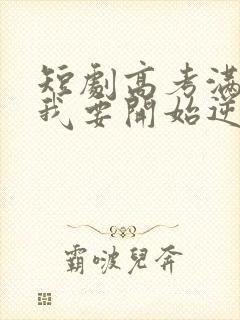 短劇高考滿
我要開始逆
霸啵兒奔